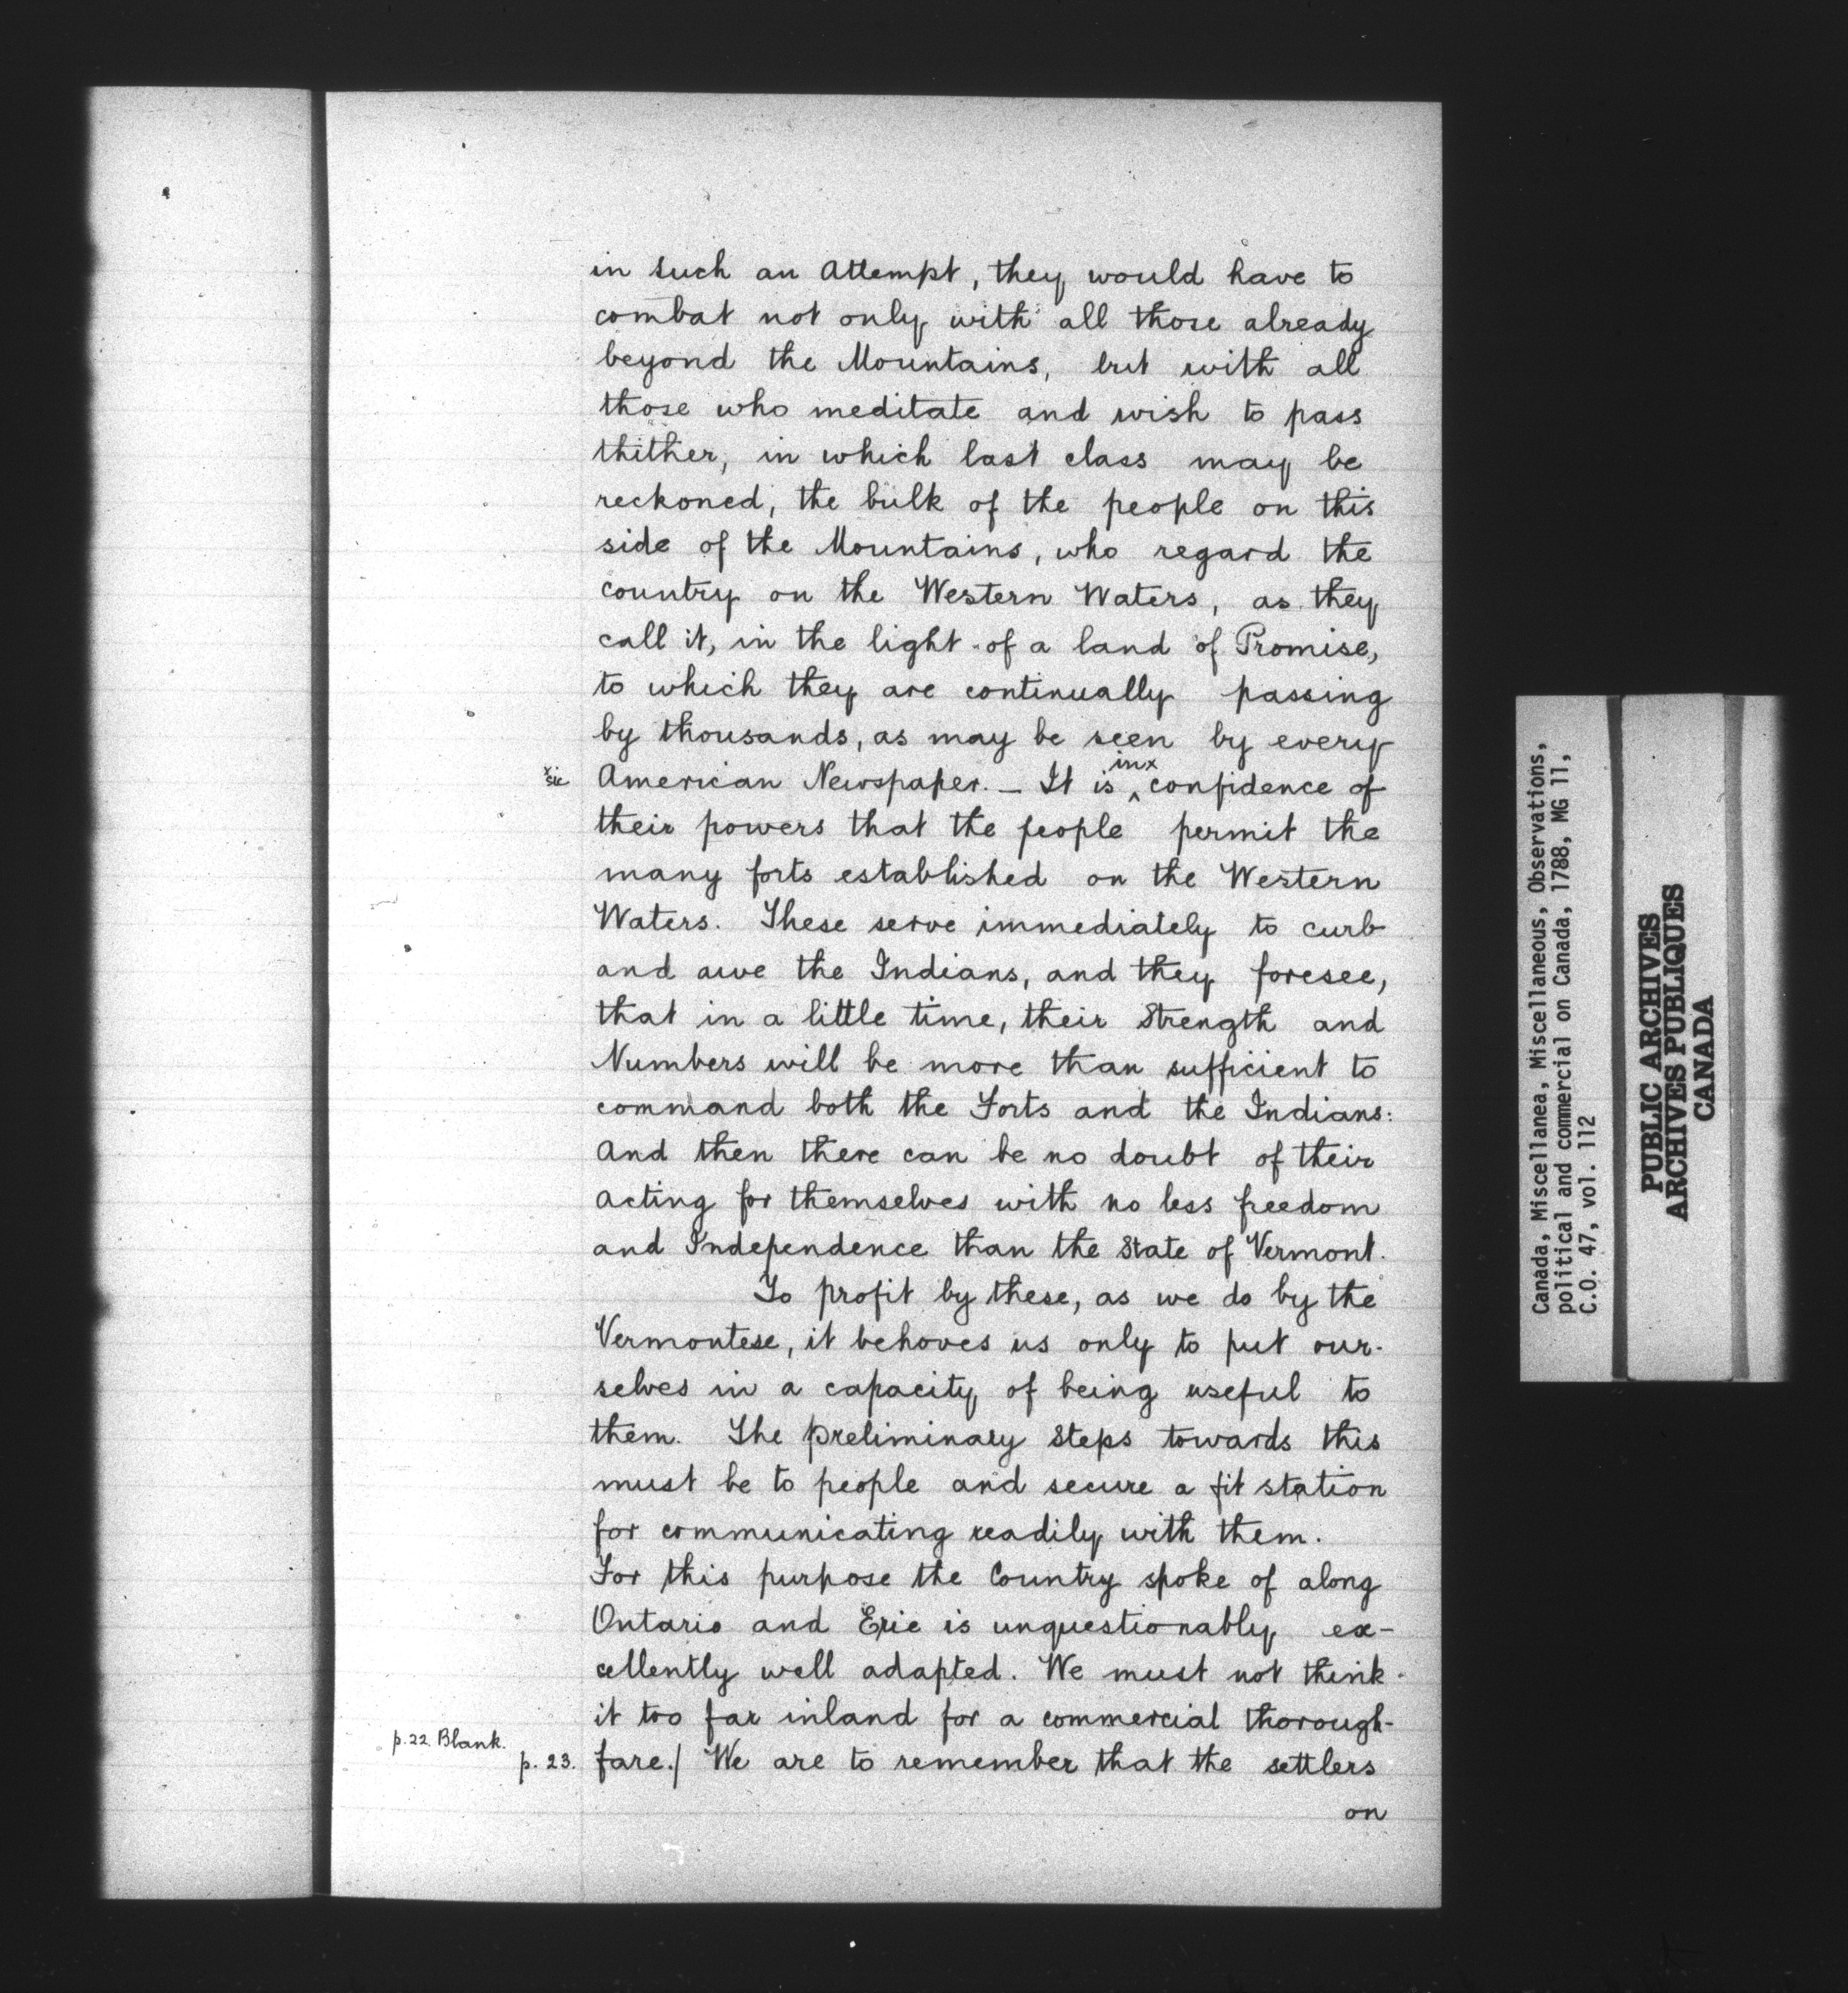 in such an Attempt, they would have to
combat not only with all those already
beyond the Mountains, but with all
those who meditate and wish to pass
thither, in which last class may be
reckoned, the bulk of the people on this
side of the Mountains, who regard the
country on the Western Waters, as they
call it, in the light of a land of Promise,
to which they are continually passing
by thousands, as may be seen by every
inx
x sic American Newspaper. — It is ^ confidence of
their powers that the people permit the
many forts established on the Western
Waters. These serve immediately to curb
and awe the Indians, and they foresee,
that in a little time, their Strength and
Numbers will be more than sufficient to
command both the Forts and the Indians:
And then there can be no doubt of their
acting for themselves with no less freedom
and Independence than the State of Vermont.
To profit by these, as we do by the
Vermontese, it behoves us only to put our-
selves in a capacity of being useful to
them. The preliminary Steps towards this
must be to people and secure a fit station
for communicating readily with them.
For this purpose the Country spoke of along
Ontario and Erie is unquestionably ex-
cellently well adapted. We must not think
it too far inland for a commercial thorough-
p. 22. Blank.
p. 23. fare./ We are to remember that the settlers
on
Canada, Miscellanea, Miscellaneous, Observations,
political and commercial on Canada, 1788, MG 11,
C.O. 47, vol. 112
PUBLIC ARCHIVES
ARCHIVES PUBLIQUES
CANADA